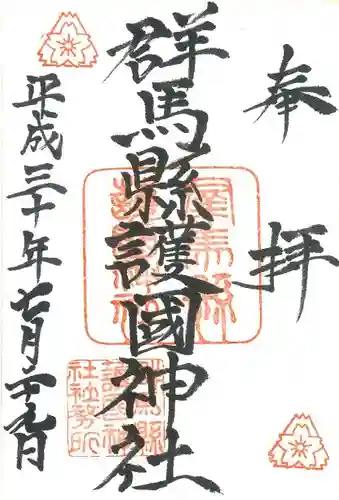 奉拝
群馬縣護國神社
平成三十年七月二十九日
群馬縣護國神社
護國神社社務所